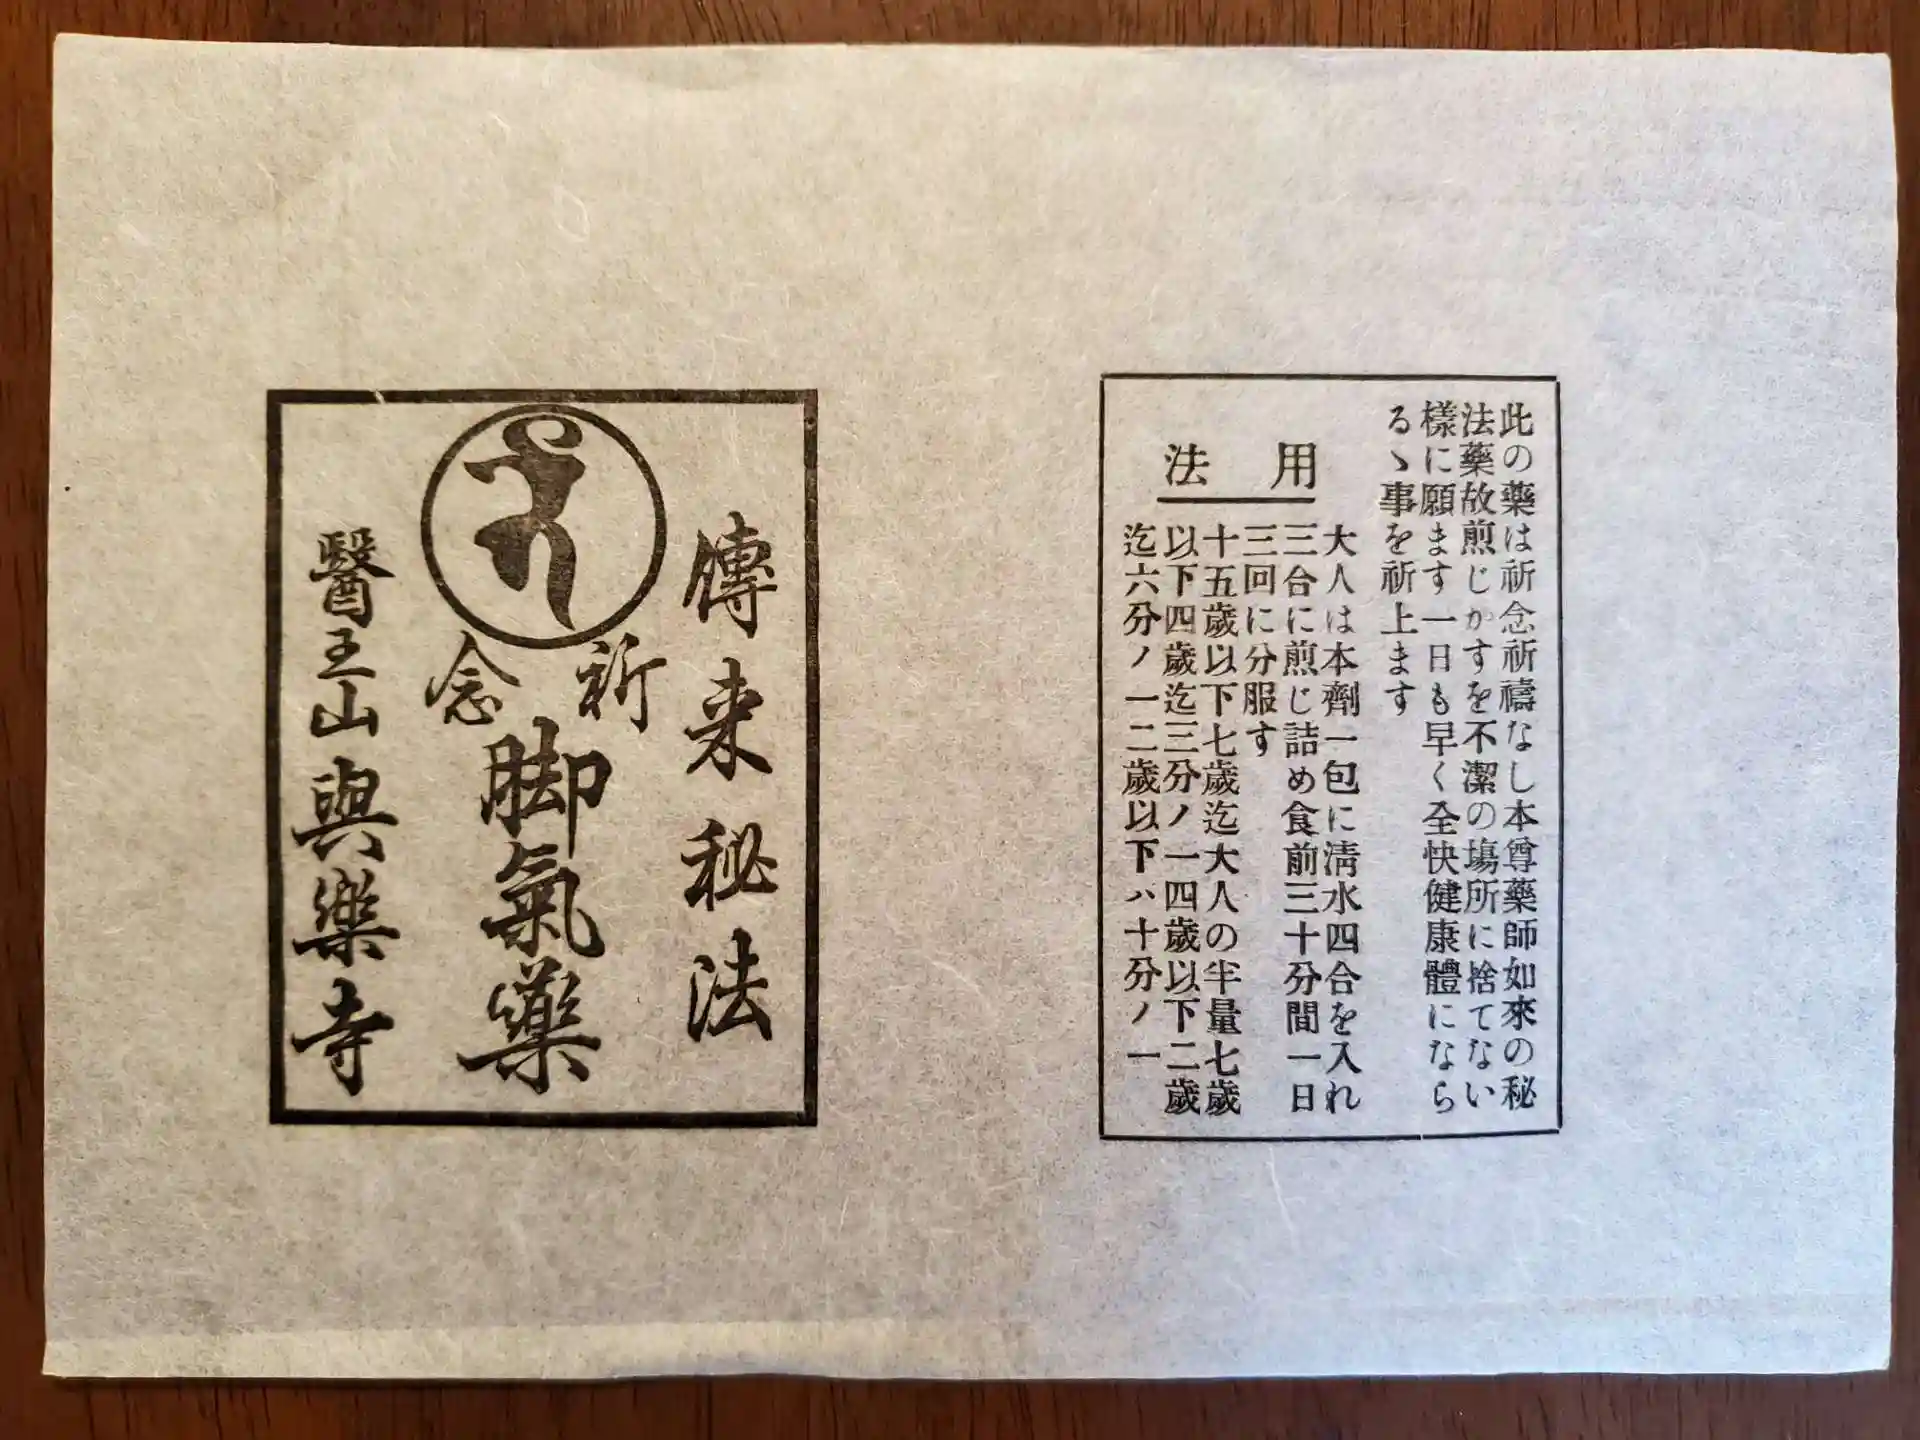 此の藥は祈念祈禱なし本尊藥師如來の秘
法藥故煎じかすを不潔の場所に捨てない
樣に願ます一日も早く全快健康體になら
るゝ事を祈上ます
用法
大人は本劑一包に淸水四合を入れ
三合に煎じ詰め食前三十分間一日
三回に分服す
十五歲以下七歲迄大人の半量七歲
以下四歲迄三分ノ一四歲以下二歲
迄六分ノ一二歲以下ハ十分ノ一
傳来秘法
祈念
脚氣藥
醫王山興樂寺